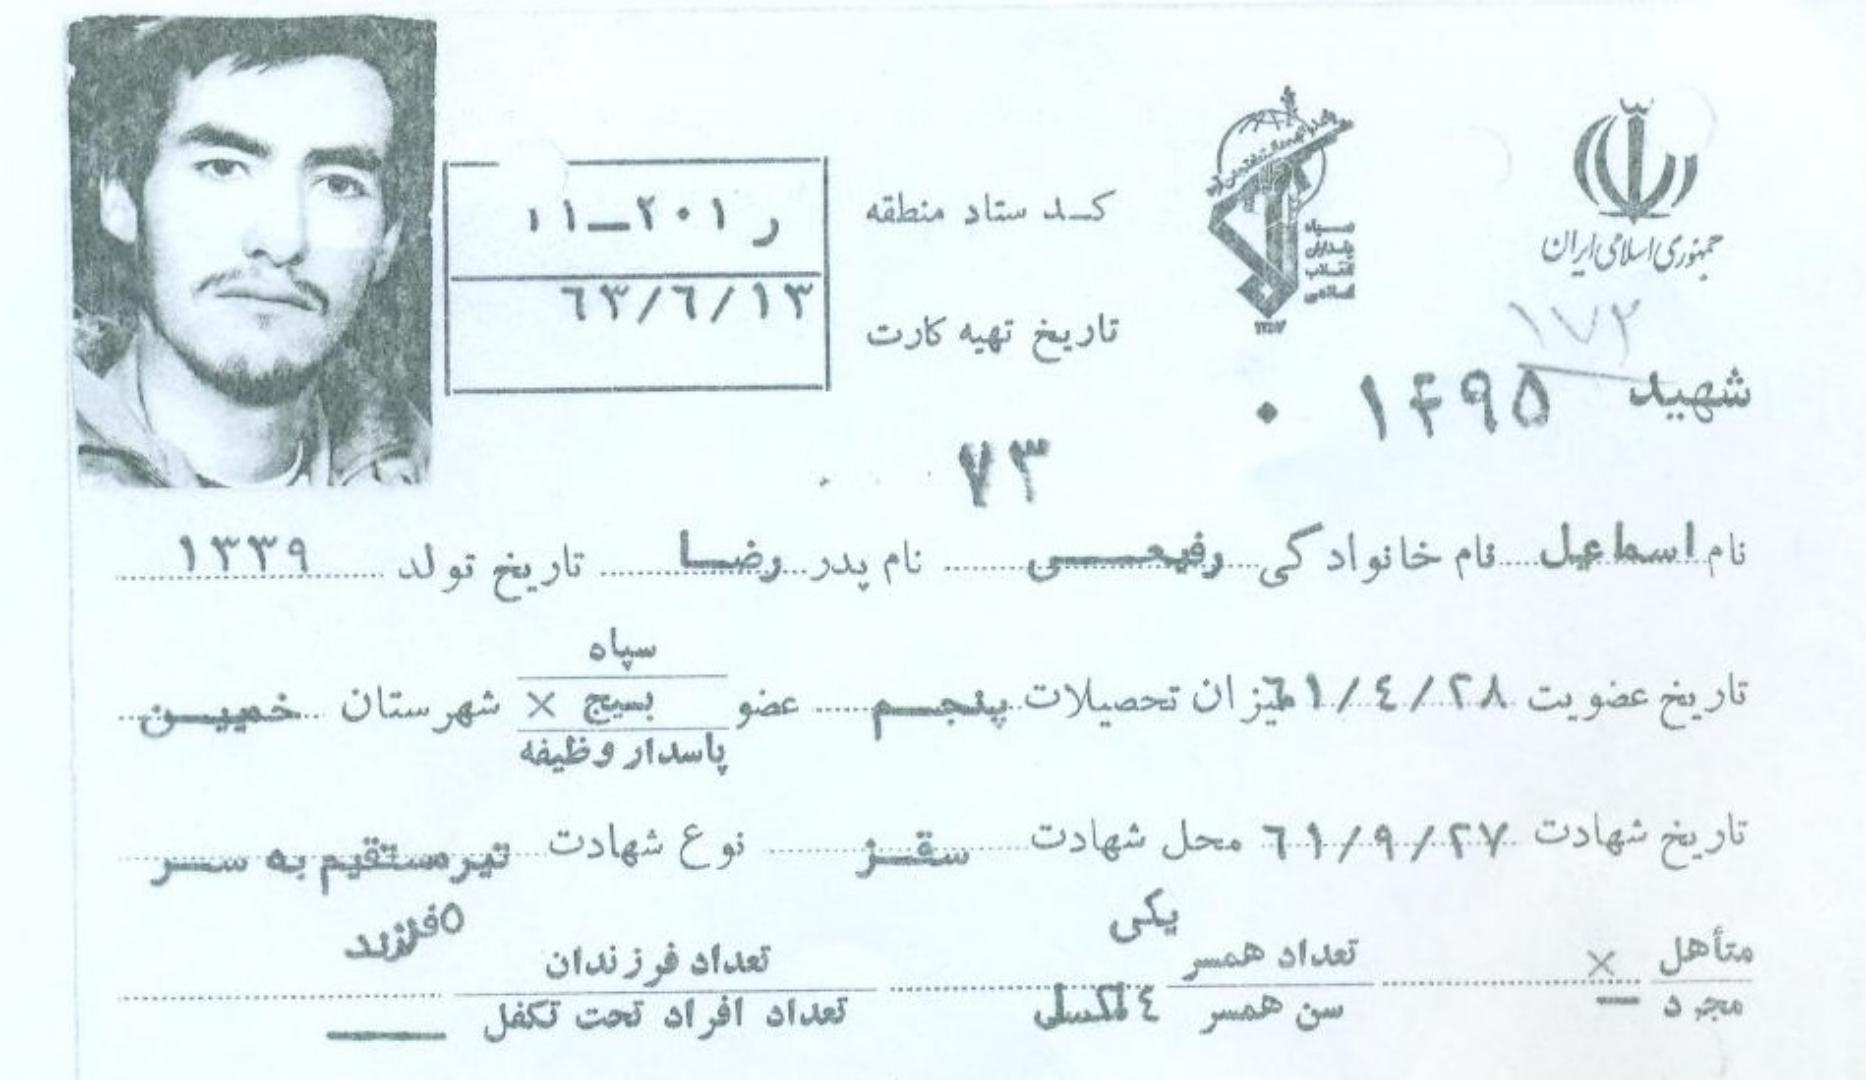 جمهوری اسلامی ایران
سپاه پاسداران انقلاب اسلامی
کد ستاد منطقه ر ۲۰۱-۱۱
تاریخ تهیه کارت ٦٣/٦/١٣
۱۷۲
شهید ۱۴۹۵ ۰
۷۳
نام اسماعیل نام خانوادگی رفیعی نام پدر رضا تاریخ تولد ۱۳۳۹
سپاه
تاریخ عضویت ٦١/٤/٢٨ میزان تحصیلات پنجم عضو بسیج × شهرستان خمین
پاسدار وظیفه
تاریخ شهادت ٦١/٩/٢٧ محل شهادت سقز نوع شهادت تیر مستقیم به سر
متأهل × تعداد همسر یکی تعداد فرزندان ٥ فرزند
مجرد — سن همسر تعداد افراد تحت تکفل —